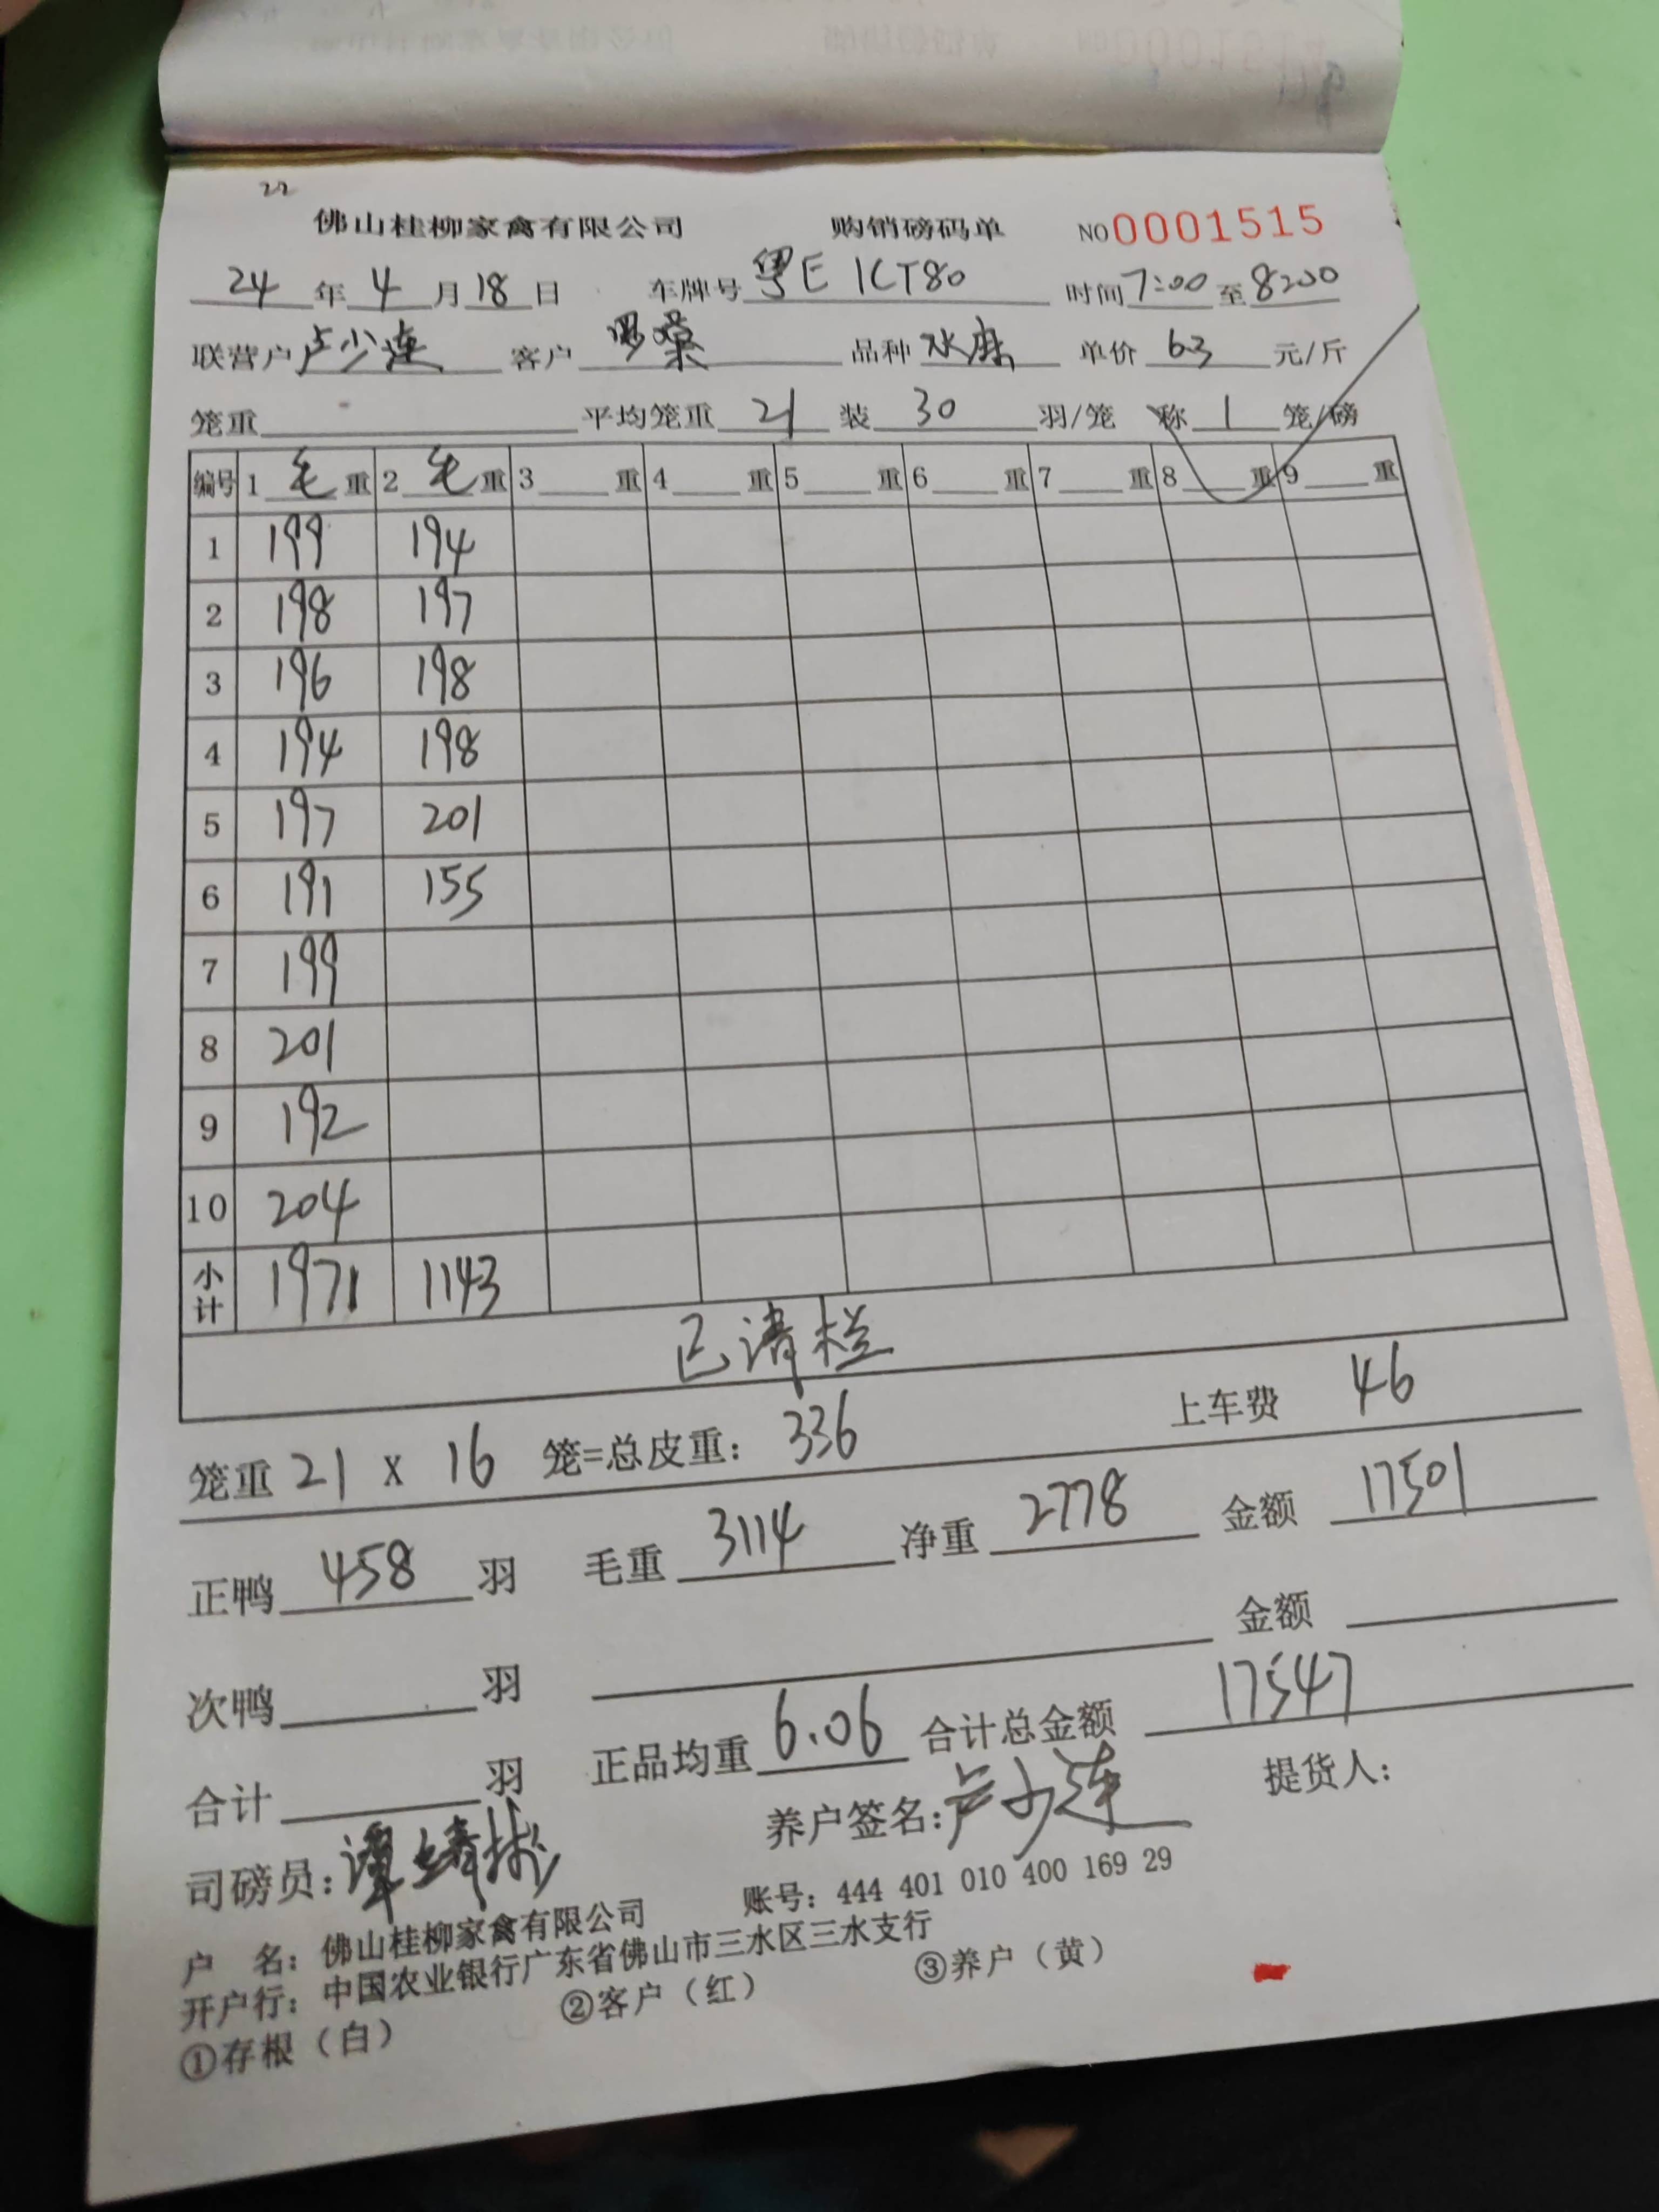 22
佛山桂柳家禽有限公司 购销磅码单 NO 0001515
24 年 4 月 18 日 车牌号 粤E 1CT80 时间 7:00 至 8:00
联营户 卢少连 客户 罗燊 品种 水麻 单价 63 元/斤
笼重 平均笼重 21 装 30 羽/笼 称 1 笼/磅
编号 1 毛 重 2 毛 重 3 重 4 重 5 重 6 重 7 重 8 重 9 重
1 199 194
2 198 197
3 196 198
4 194 198
5 197 201
6 191 155
7 199
8 201
9 192
10 204
小计 1971 1143
已清栏
笼重 21 x 16 笼=总皮重: 336 上车费 46
正鸭 458 羽 毛重 3114 净重 2778 金额 17501
次鸭 羽 金额
合计 羽 正品均重 6.06 合计总金额 17547
司磅员: 养户签名: 卢少连 提货人:
户 名: 佛山桂柳家禽有限公司 账号: 444 401 010 400 169 29
开户行: 中国农业银行广东省佛山市三水区三水支行
①存根（白） ②客户（红） ③养户（黄）